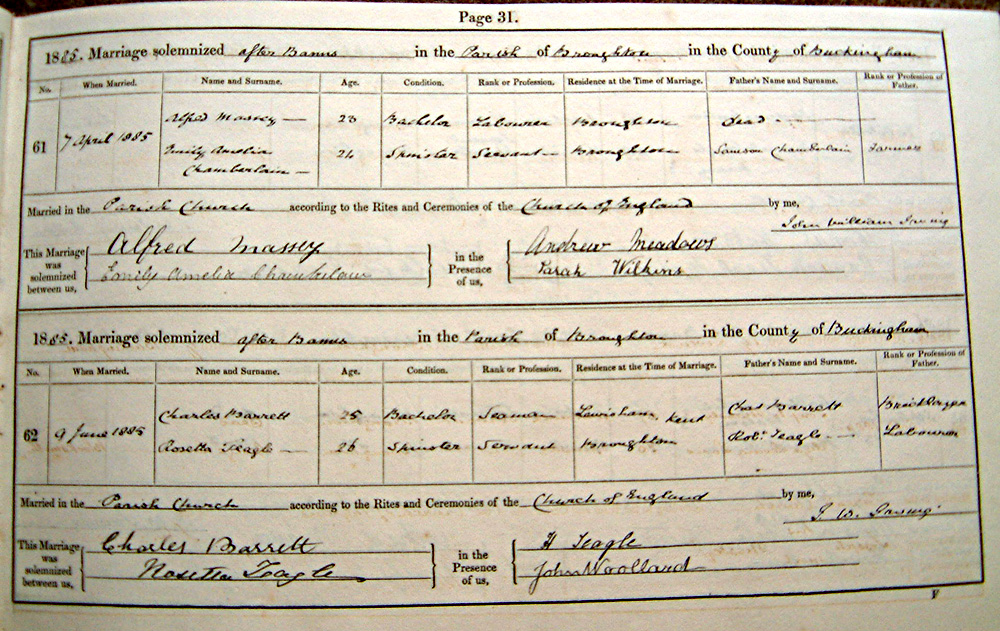 Page 31.
1885. Marriage solemnized after Banns in the Parish of Broughton in the County of Buckingham
No. When Married. Name and Surname. Age. Condition. Rank or Profession. Residence at the Time of Marriage. Father's Name and Surname. Rank or Profession of Father.
61 7 April 1885 Alfred Massey — 23 Bachelor Labourer Broughton Dead
Emily Amelia 24 Spinster Servant Broughton Samson Chamberlain Farmer
Chamberlain —
Married in the Parish Church according to the Rites and Ceremonies of the Church of England by me,
John William Irving
This Marriage was solemnized between us, Alfred Massey in the Presence of us, Andrew Meadows
Emily Amelia Chamberlain Sarah Wilkins
1885. Marriage solemnized after Banns in the Parish of Broughton in the County of Buckingham
No. When Married. Name and Surname. Age. Condition. Rank or Profession. Residence at the Time of Marriage. Father's Name and Surname. Rank or Profession of Father.
62 9 June 1885 Charles Barrett 25 Bachelor Seaman Lewisham Kent Chas Barrett
Rosetta Teagle — 26 Spinster Servant Broughton Robt. Teagle — Labourer
Married in the Parish Church according to the Rites and Ceremonies of the Church of England by me,
J. W. Irving
This Marriage was solemnized between us, Charles Barrett in the Presence of us, H Teagle
Rosetta Teagle John Woollard